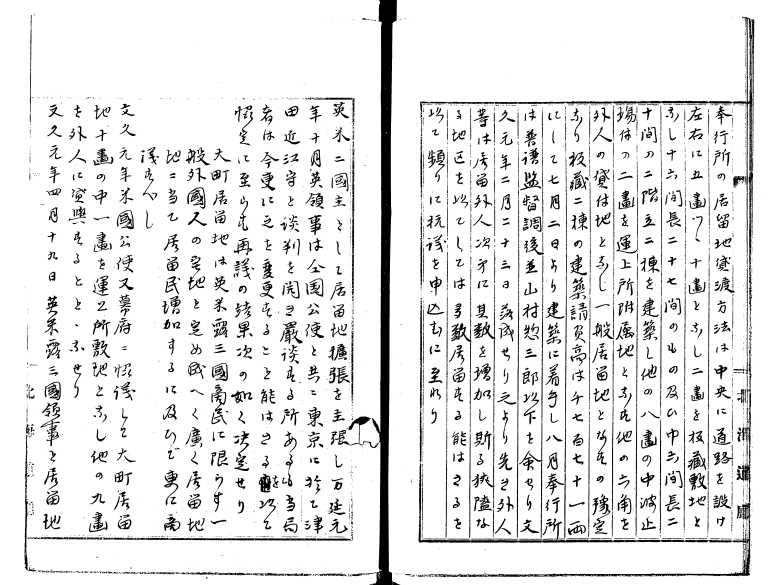 奉行所の居留地貸渡方法は中央に道路を設け
左右に五畫ツヽ十畫となし二畫を板藏敷地と
なし十六間長二十七間のもの及ひ巾三間長二
十間の二階立二棟を建築し他の八畫の中波止
場付の二畫を運上所附属地となし他の六角を
外人の貸付地となし一般居留地となすの豫定
なり板藏二棟の建築請負高は千七百七十一両
にして七月二日より建築に着手し八月奉行所
は普請監督調役並山村惣三郎以下を命せり文
久元年二月二十三日落成せり之より先き外人
等は居留外人次第に其数を増加し斯る狭隘な
る地区を以てしては多数居留する能はさるを
以て頻りに抗議を申込むに至れり
英米二國主として居留地擴張を主張し万延元
年十月英領事は全国公使と共に東京に於て津
田近江守と談判を開き厳談する所あるも当局
者は今更に之を変更すること能はさる を以て
決定に至らす再議の結果次の如く決定せり
大町居留地は英米露三國商民に限らす一
般外國人の宅地と定め成へく廣く居留地
地に当て居留民増加するに及ひて更に商
議すへし
文久元年米國公使又幕府に 議して大町居留
地十畫の中一畫を運上所敷地となし他の九畫
を外人に貸與することゝなせり
文久元年四月十九日英米露三國領事と居留地
北海道廳